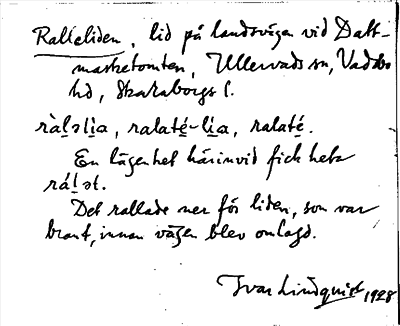 Ralleliden, lid på landsvägen vid Datt-
marketomten, Ullervads sn, Vadsbo
hd, Skaraborgs l.
ràl̠əli̠a, ralaté̠-li̠a, ralaté̠.
En lägenhet härinvid fick heta
rál̠ət.
Det rallade ner för liden, som var
brant, innan vägen blev omlagd.
Ivar Lindquist 1928